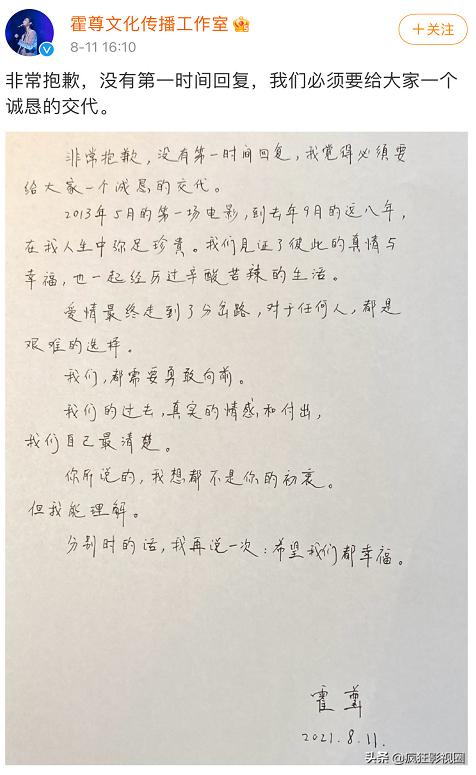 霍尊文化传播工作室
8-11 16:10
+关注
非常抱歉，没有第一时间回复，我们必须要给大家一个
诚恳的交代。
非常抱歉，没有第一时间回复，我觉得必须要
给大家一个诚恳的交代。
2013年5月的第一场电影，到去年9月的这八年，
在我人生中弥足珍贵。我们见证了彼此的真情与
幸福，也一起经历过辛酸苦辣的生活。
爱情最终走到了分岔路，对于任何人，都是
艰难的选择。
我们，都需要勇敢向前。
我们的过去，真实的情感和付出，
我们自己最清楚。
你所说的，我想都不是你的初衷。
但我能理解。
分别时的话，我再说一次：希望我们都幸福。
霍尊
2021.8.11.
头条@疯狂影视圈